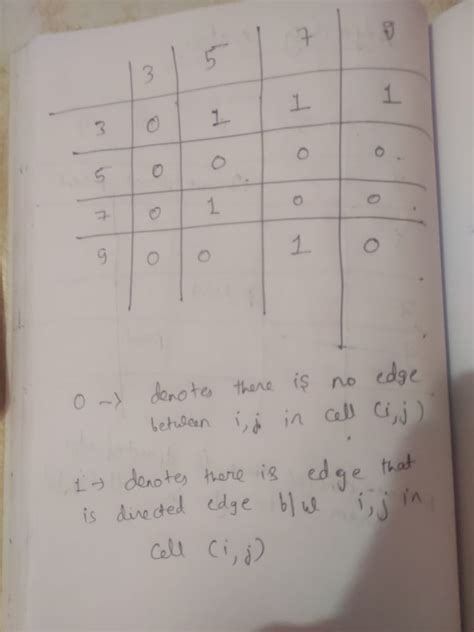 3 5 7 9
3 0 1 1 1
5 0 0 0 0
7 0 1 0 0
9 0 0 1 0
0 → denotes there is no edge
between i,j in cell (i,j)
1 → denotes there is edge that
is directed edge b/w i,j in
cell (i,j)